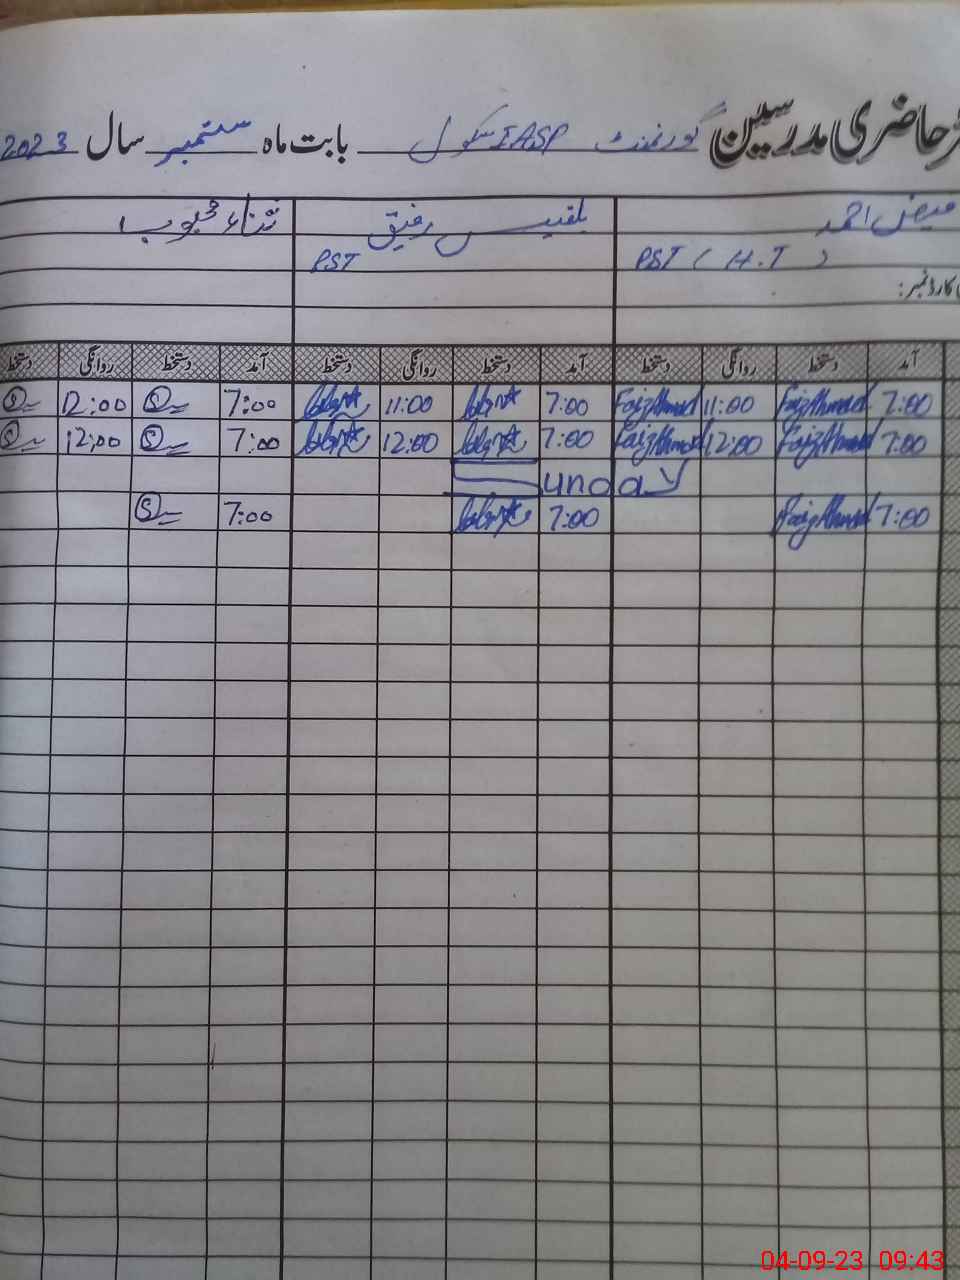 حاضری مدرسین گورنمنٹ IASP سکول بابت ماہ ستمبر سال 2023
فیض احمد بلقیس رفیق ثناء محبوب
PST ( H.T ) PST
کارڈ نمبر:
آمد دستخط روانگی دستخط آمد دستخط روانگی دستخط آمد دستخط روانگی دستخط
7:00 Faiz Ahmed 11:00 Faiz Ahmed 7:00 11:00 7:00 12:00
7:00 Faiz Ahmed 12:00 Faiz Ahmed 7:00 12:00 7:00 12:00
Sunday
7:00 Faiz Ahmed 7:00 7:00
04-09-23 09:43